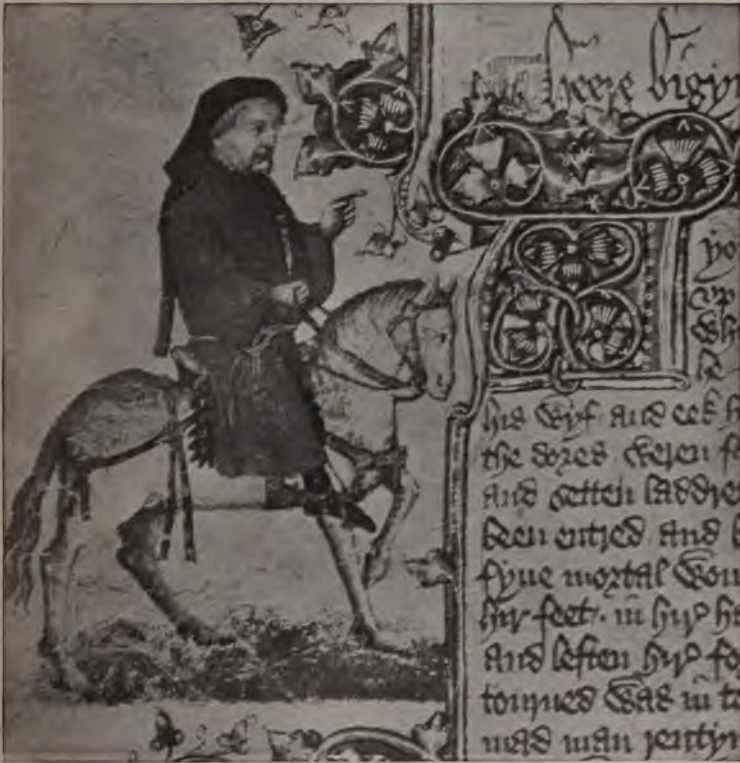 heere bigyn
yo
vp
Wh
his wyf and eek h
the dores weren f
and setten laddre
been entred and b
fyue mortal wou
hir feet. in hir h
and leften hir fo
tourned was in to
mad man rentyn